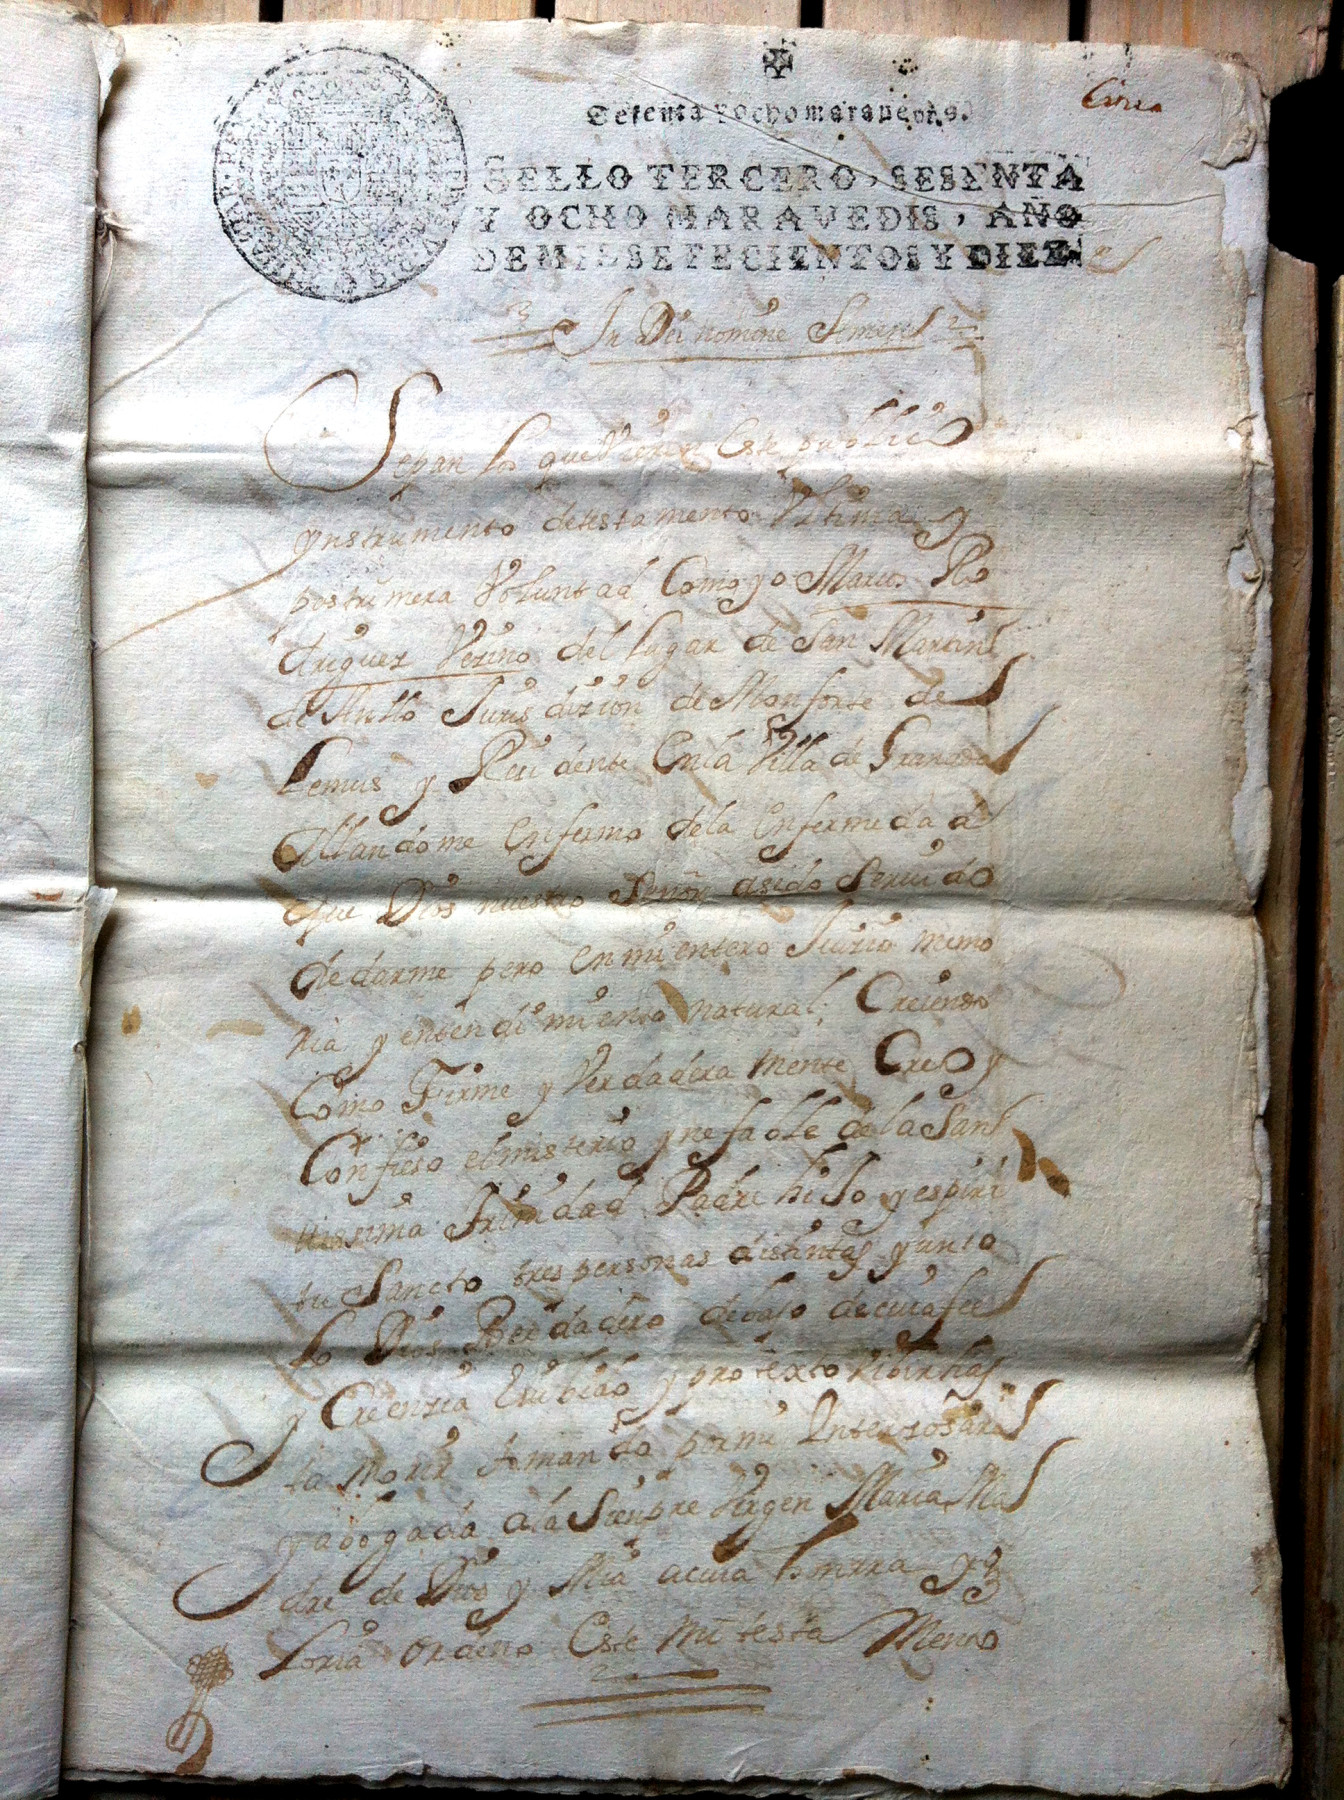 Sesenta y ocho maravedis.
SELLO TERCERO, SESENTA
Y OCHO MARAVEDIS, AÑO
DE MIL SETECIENTOS Y DIEZ
In Dei nomine
Sepan los que Vieren Este public
ynstrumento detestamento Vltima y
postrimera Voluntad Como yo Marcos Ro
driguez Vezino del lugar de San Martin
de Anllo Jurisdizion de Monforte de
Lemus y Residente En la Villa de Granada
Allandome Enfermo dela Enfermedad
que Dios nuestro Señor asido Seruido
de darme pero en mi entero Juizio memo
ria y entendimiento natural, Creiendo
Como Firme y Verdadera mente Creo y
Confieso el misterio ynefable de la San
tissima Trinidad Padre hiJo y espiri
tu Sancto tres personas distintas y un so
lo Dios Berdadero debajo de cuia fee
y Creenzia E bibido y protexto bibir has
ta morir tomando por mi Interzesora
y abogada ala Sienpre Virgen Maria Ma
dre de Dios y Mia acuia honrra y g
loria ordeno Este mi testa Mento